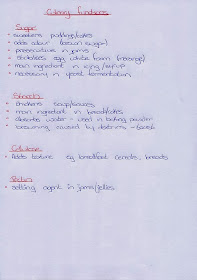 Culinary functions
Sugar
- sweetens puddings/cakes
- adds colour (brown sugar)
- preservative in jams
- stabilises egg white foam (meringue)
- main ingredient in icing/
- necessary in yeast fermentation
Starch
- thickens soup/sauces
- main ingredient in bread/cakes
- absorbs water - used in baking powder
- browning caused by dextrins - toast
Cellulose
- Adds texture eg breakfast cereals, breads
Pectin
- setting agent in jams/jellies